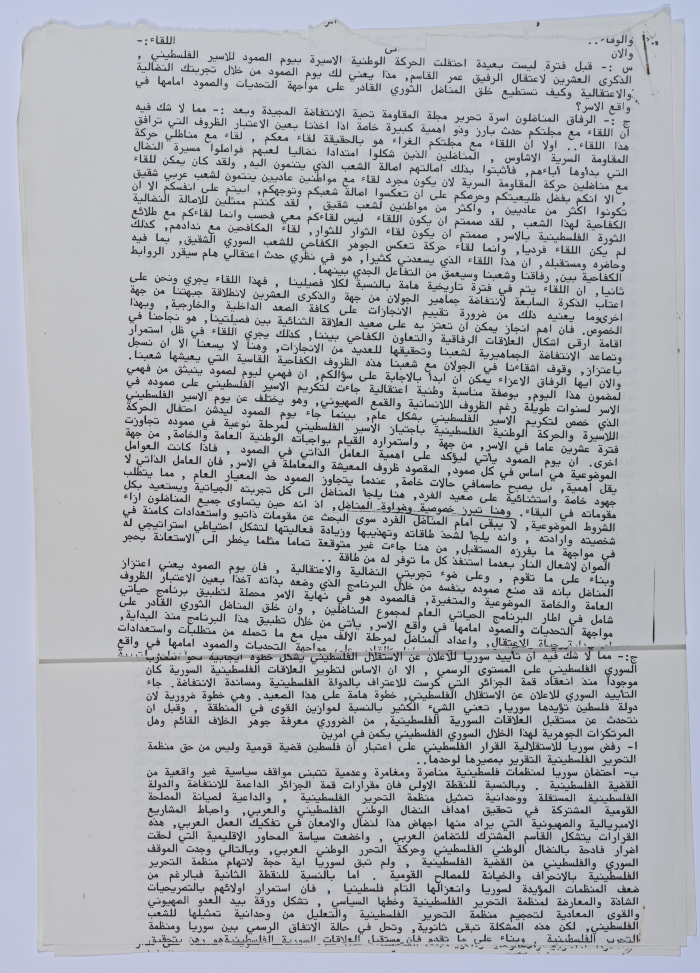 والوفاء..
اللقاء:-
والان
س :- قبل فترة ليست بعيدة احتفلت الحركة الوطنية الاسيرة بيوم الصمود للاسير الفلسطيني ,
الذكرى العشرين لاعتقال الرفيق عمر القاسم, مذا يعني لك يوم الصمود من خلال تجربتك النضالية
والاعتقالية وكيف تستطيع خلق المناضل الثوري القادر على مواجهة التحديات والصمود امامها في
واقع الاسر؟
ج :- الرفاق المناضلون اسرة تحرير مجلة المقاومة تحية الانتفاضة المجيدة وبعد :- مما لا شك فيه
أن اللقاء مع مجلتكم حدث بارز وذو اهمية كبيرة خاصة اذا اخذنا بعين الاعتبار الظروف التي ترافق
هذا اللقاء.. اولا ان اللقاء مع مجلتكم الغراء هو بالحقيقة لقاء معكم , لقاء مع مناضلي حركة
المقاومة السرية الاشاوس , المناضلين الذين شكلوا امتدادا نضاليا لعبهم فواصلوا مسيرة النضال
التي بدأوها أباءهم, فأثبتوا بذلك اصالتهم اصالة الشعب الذي ينتمون اليه, ولقد كان يمكن للقاء
مع مناضلين حركة المقاومة السرية لان يكون مجرد لقاء مع مواطنين عاديين ينتمون لشعب عربي شقيق
, الا انكم بفضل طليعيتكم وحرصكم على ان تعكسوا اصالة شعبكم وتوجهكم, ابيتم على انفسكم الا ان
تكونوا اكثر من عاديين , واكثر من مواطنين لشعب شقيق , لقد كنتم ممثلين للاصالة النضالية
الكفاحية لهذا الشعب , لقد صممتم ان يكون اللقاء ليس لقاءكم معي فحسب وانما لقاءكم مع طلائع
الثورة الفلسطينية بالاسر, صممتم ان يكون لقاء الثوار للثوار, لقاء المكافحين مع ندادهم, كذلك
لم يكن اللقاء فرديا, وانما لقاء حركة تعكس الجوهر الكفاحي للشعب السوري الشقيق, بما فيه
وحاضره ومستقبله, ان هذا اللقاء الذي يسعدني كثيرا, هو في نظري حدث اعتقالي هام سيقرر الروابط
الكفاحية بين رفاقنا وشعبينا وسيعمق من التفاعل الجدي بينهما.
ثانيا, ان اللقاء يتم في فترة تاريخية هامة بالنسبة لكلا فصيلينا , فهذا اللقاء يجري ونحن على
اعتاب الذكرى السابعة لانتفاضة جماهير الجولان من جهة والذكرى العشرين لانطلاقة جبهتنا من جهة
اخرى وما يعنيه ذلك من ضرورة تقييم الانجازات على كافة الصعد الداخلية والخارجية, وبهذا
الخصوص. فان اهم انجاز يمكن ان نعتز به على صعيد العلاقة الثنائية بين فصيلتينا, هو نجاحنا في
اقامة ارقى اشكال العلاقات الرفاقية والتعاون الكفاحي بيننا, كذلك يجري اللقاء في ظل استمرار
وتصاعد الانتفاضة الجماهيرية لشعبنا وتحقيقها للعديد من الانجازات, وهنا لا يسعنا الا ان نسجل
باعتزاز, وقوف اشقاءنا في الجولان مع شعبنا هذه الظروف الكفاحية القاسية التي يعيشها شعبنا.
والان ايها الرفاق الاعزاء يمكن ان ابدأ بالاجابة على سؤالكم, ان فهمي ليوم لصمود ينبثق من فهمي
لمضمون هذا اليوم, بوصفة مناسبة وطنية اعتقالية جاءت لتكريم الاسير الفلسطيني على صموده في
الاسر لسنوات طويلة رغم الظروف اللاانسانية والقمع الصهيوني, وهو يختلف عن يوم الاسير الفلسطيني
الذي خصص لتكريم الاسير الفلسطيني بشكل عام, بينما جاء يوم الصمود ليدشن احتفال الحركة
اللاسيرة والحركة الوطنية الفلسطينية باجتياز الاسير الفلسطيني لمرحلة نوعية في صموده تجاوزت
فترة عشرين عاما في الاسر, من جهة , واستمراره القيام بواجباته الوطنية العامة والخاصة, من جهة
اخرى. ان يوم الصمود يأتي ليؤكد على اهمية العامل الذاتي في الصمود , فاذا كانت العوامل
الموضوعية هي اساس في كل صمود, المقصود ظروف المعيشة والمعاملة في الاسر, فان العامل الذاتي لا
يقل اهمية, بل يصبح حاسمافي حالات خاصة, عندما يتجاوز الصمود حد المعيار العام , مما يتطلب
جهود خاصة واستثنائية على صعيد الفرد, هنا يلجأ المناضل الى كل تجربته الحياتية ويستعيد بكل
مقوماته في البقاء. وهنا تبرز خصوصية وضراوة المناضل, اذ انه حين يتساوى جميع المناضلون ازاء
الشروط الموضوعية, لا يبقى امام المناضل الفرد سوى البحث عن مقومات ذاتيو واستعدادات كامنة في
شخصيته وارادته , وانه يلجأ لشحذ طاقاته وتهذيبها وزيادة فعاليتها لتشكل احتياطي استراتيجي له
في مواجهة ما يفرزه المستقبل, من هنا جاءت غير متوقعة تماما مثلما يخطر الى الاستعانة بحجر
الصوان لاشعال النار بعدما استنفذ كل ما توفر له من طاقة ..
وبناء على ما تقوم , وعلى ضوء تجربتي النضالية والاعتقالية , فان يوم الصمود يعني اعتزاز
المناضل بانه قد صنع صموده بنفسه من خلال البرنامج الذي وضعه بذاته آخذا بعين الاعتبار الظروف
العامة والخاصة الموضوعية والمتغيرة, فالصمود هو في نهاية الامر محصلة لتطبيق برنامج حياتي
شامل في اطار البرنامج الحياتي العام لمجموع المناضلين , وان خلق المناضل الثوري القادر على
مواجهة التحديات والصمود امامها في واقع الاسر, يأتي من خلال تطبيق هذا البرنامج منذ البداية,
حياة الاعتقال, واعداد المناضل لمرحلة الالف ميل مع ما تحمله من متطلبات واستعدادات
على مواجهة التحديات والصمود امامها في واقع
ج:- مما لا شك فيه ان تأييد سوريا للاعلان عن الاستقلال الفلسطيني يشكل خطوة ايجابية نحو
السوري الفلسطيني على المستوى الرسمي , الا ان الاساس لتطوير العلاقات الفلسطينية السورية كان
موجودا منذ انعقاد قمة الجزائر التي كرست للاعتراف بالدولة الفلسطينية ومساندة الانتفاضة. جاء
التأييد السوري للاعلان عن الاستقلال الفلسطيني, خطوة هامة على هذا الصعيد. وهي خطوة ضرورية لان
دولة فلسطين تؤيدها سوريا, تعني الشيء الكثير بالنسبة لموازين القوى في المنطقة , وقبل ان
نتحدث عن مستقبل العلاقات السورية الفلسطينية, من الضروري معرفة جوهر الخلاف القائم وهل
المرتكزات الجوهرية لهذا الخلال السوري الفلسطيني يكمن في امرين
ا- رفض سوريا للاستقلالية القرار الفلسطيني على اعتبار ان فلسطين قضية قومية وليس من حق منظمة
التحرير الفلسطينية التقرير بمصيرها لوحدها..
ب- احتضان سوريا لمنظمات فلسطينية مناصرة ومغامرة وعدمية تتبنى مواقف سياسية غير واقعية من
القضية الفلسطينية . وبالنسبة للنقطة الاولى فان مقرارات قمة الجزائر الداعمة للانتفاضة والدولة
الفلسطينية المستقلة ووحدانية تمثيل منظمة التحرير الفلسطينية , والداعية لصيانة المصلحة
القومية المشتركة في تحقيق اهداف النضال الوطني الفلسطيني والعربي, واحباط المشاريع
الامبريالية والصهيونية التي يراد منها اجهاض هذا لنضال والامعان في تفكيك العمل العربي, هذه
القرارات يتشكل القاسم المشترك للتضامن العربي , واخضعت سياسة المحاور الاقليمية التي لحقت
اضرار فادحة بالنضال الوطني الفلسطيني وحركة التحرر الوطني العربي, وبالتالي وجدت الموقف
السوري والفلسطيني من القضية الفلسطينية , ولم تبق لسوريا اية حجة لاتهام منظمة التحرير
الفلسطينية بالانحراف والخيانة للمصالح القومية . اما بالنسبة للنقطة الثانية فبالرغم من
ضعف المنظمات المؤيدة لسوريا وانعزالها التام فلسطينيا , فان استمرار اولائهم بالتصريحات
الشاذة والمعارضة لمنظمة التحرير الفلسطينية وخطها السياسي , تشكل ورقة بيد العدو الصهيوني
والقوى المعادية لتحجيم منظمة التحرير الفلسطينية والتعليل من وحدانية تمثيلها للشعب
الفلسطيني, لكن هذه المشكلة تبقى ثانوية, وتحل في حالة الاتفاق الرسمي بين سوريا ومنظمة
التحرير الفلسطينية . وبناء على ما تقدم فان مستقبل العلاقات السورية الفلسطينية